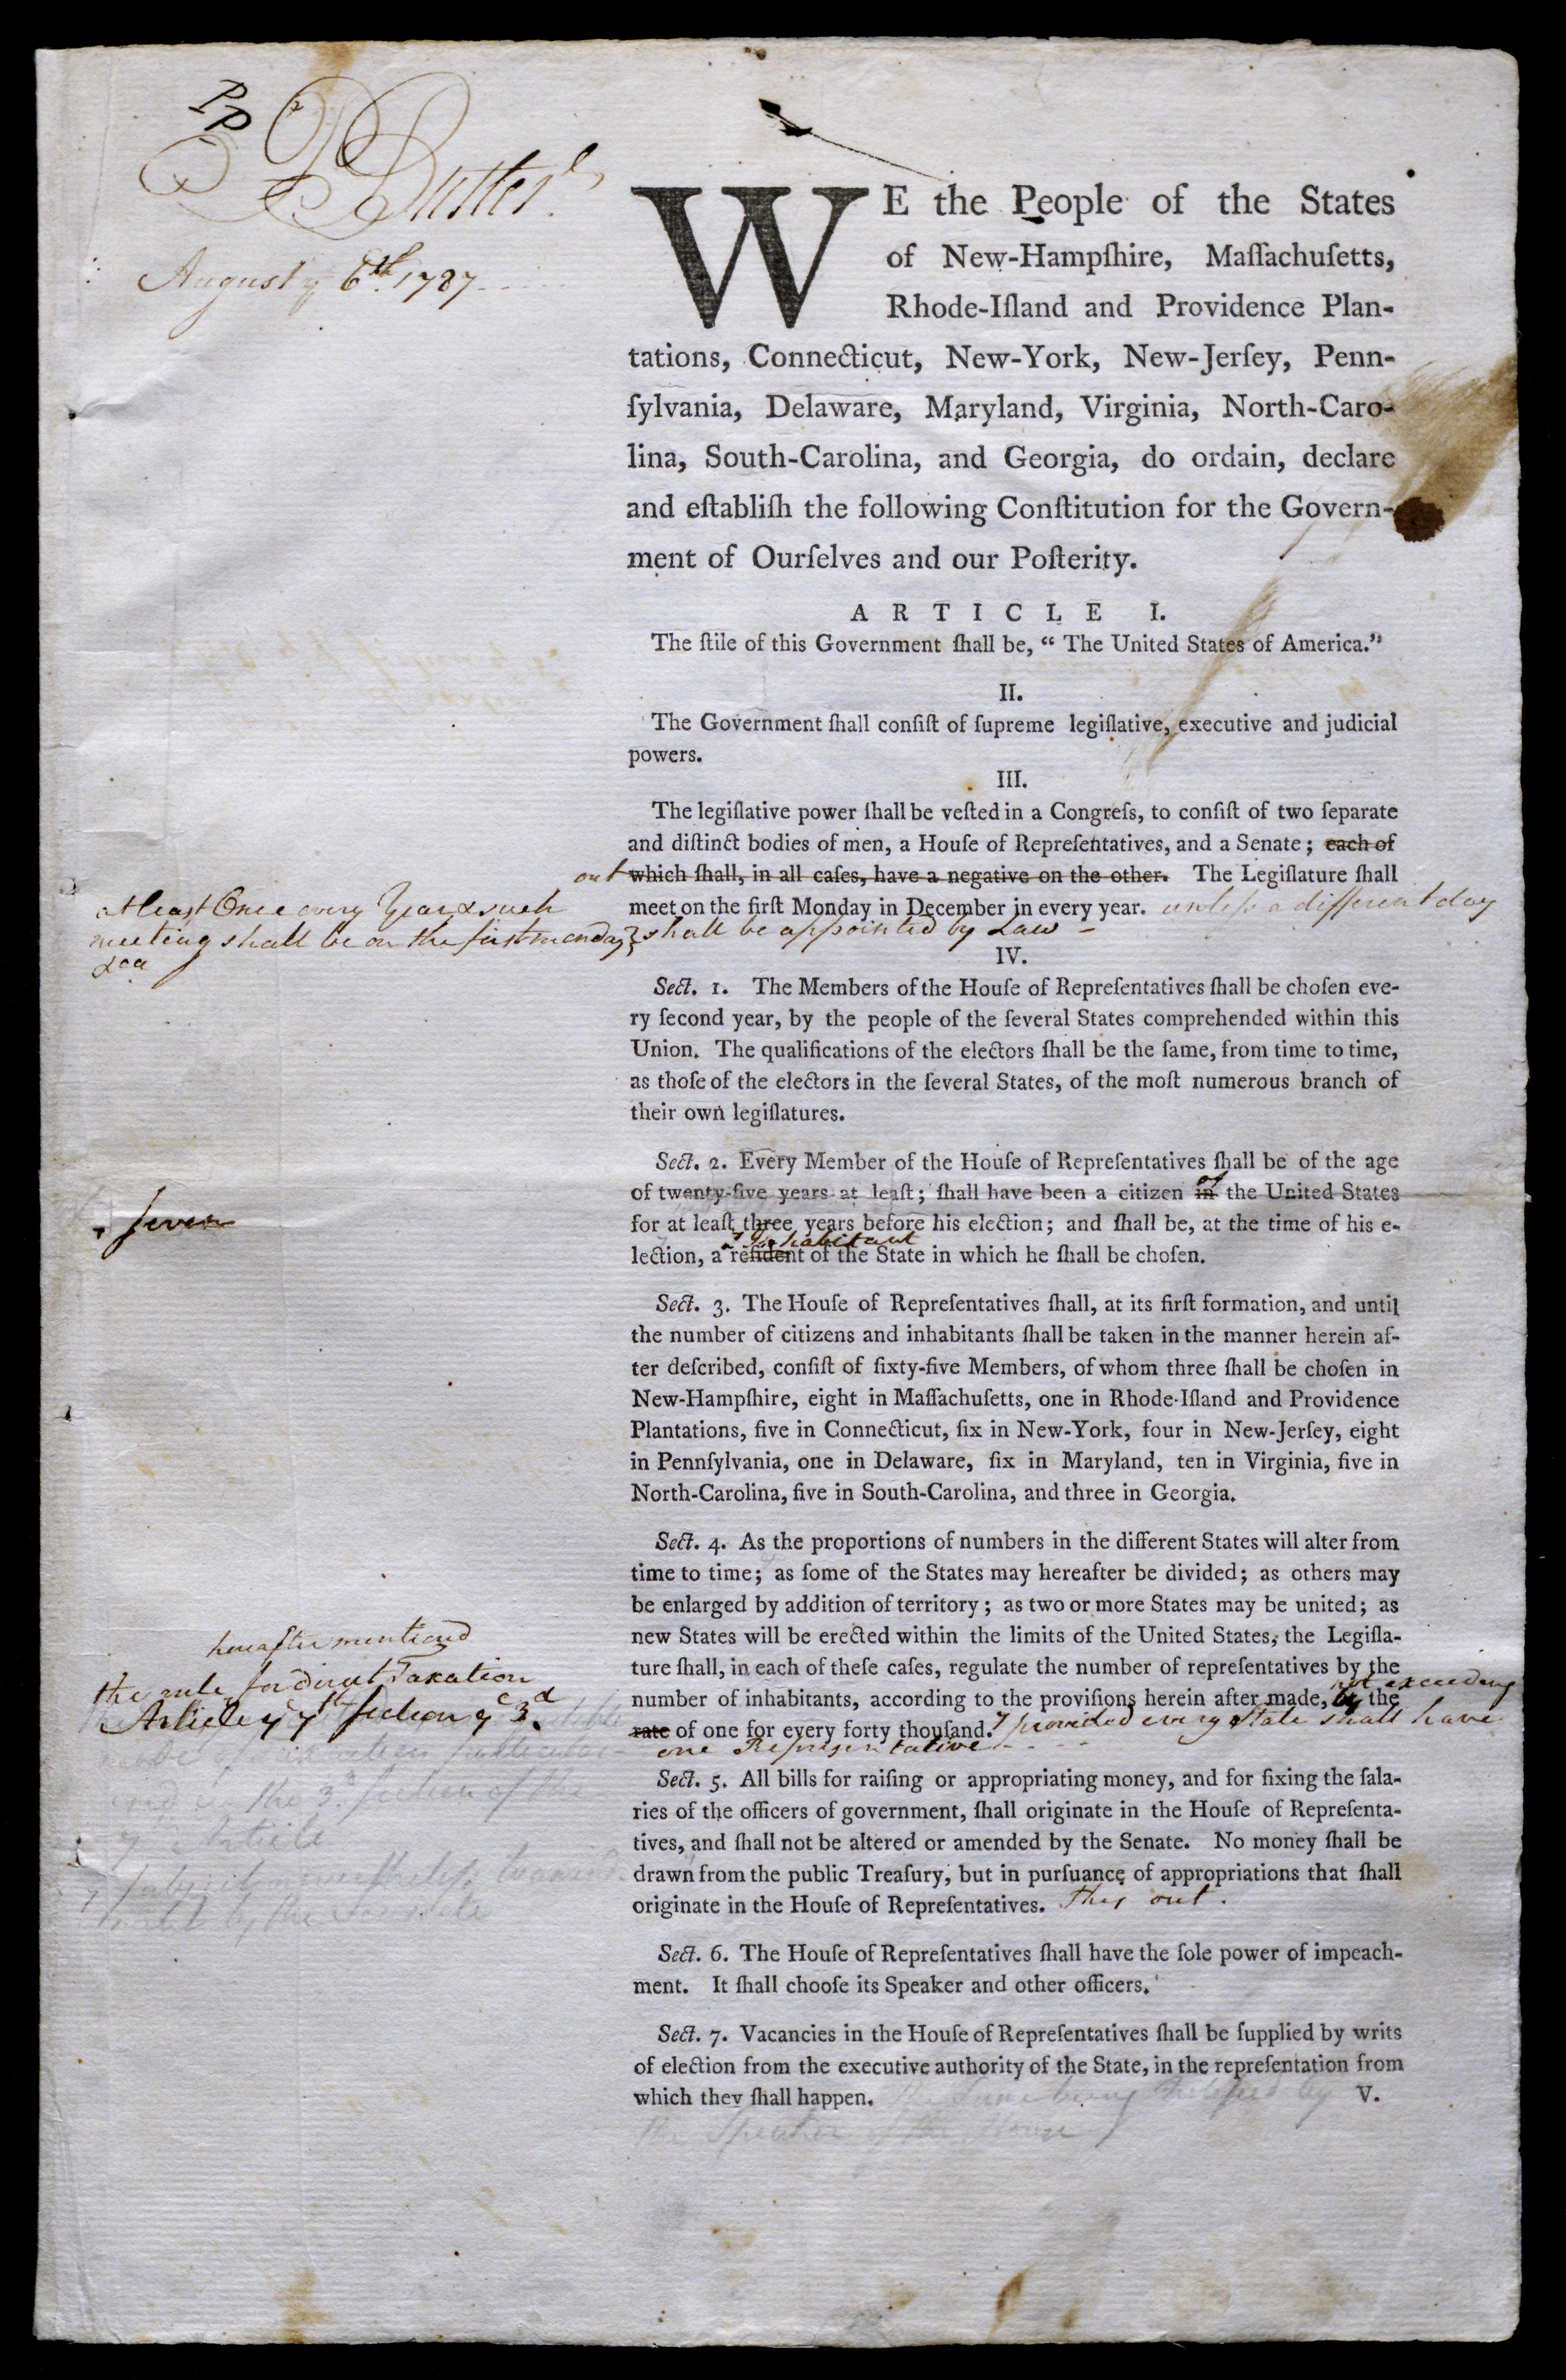 PP
P Butler
August ye 6th. 1787
WE the People of the States
of New-Hampſhire, Maſſachuſetts,
Rhode-Iſland and Providence Plan-
tations, Connecticut, New-York, New-Jerſey, Penn-
ſylvania, Delaware, Maryland, Virginia, North-Caro-
lina, South-Carolina, and Georgia, do ordain, declare
and eſtabliſh the following Conſtitution for the Govern-
ment of Ourſelves and our Poſterity.
ARTICLE I.
The ſtile of this Government ſhall be, “ The United States of America.”
II.
The Government ſhall conſiſt of ſupreme legiſlative, executive and judicial
powers.
III.
The legiſlative power ſhall be veſted in a Congreſs, to conſiſt of two ſeparate
and diſtinct bodies of men, a Houſe of Repreſentatives, and a Senate; each of
out which ſhall, in all caſes, have a negative on the other. The Legiſlature ſhall
meet on the firſt Monday in December in every year. unleſs a different day
shall be appointed by Law
at least Once every Year & such
meeting shall be on the first monday
&ca
IV.
Sect. 1. The Members of the Houſe of Repreſentatives ſhall be choſen eve-
ry ſecond year, by the people of the ſeveral States comprehended within this
Union. The qualifications of the electors ſhall be the ſame, from time to time,
as thoſe of the electors in the ſeveral States, of the moſt numerous branch of
their own legiſlatures.
Sect. 2. Every Member of the Houſe of Repreſentatives ſhall be of the age
of
of twenty-five years at leaſt; ſhall have been a citizen in the United States
seven
for at leaſt three years before his election; and ſhall be, at the time of his e-
Inhabitant
lection, a reſident of the State in which he ſhall be choſen.
Sect. 3. The Houſe of Repreſentatives ſhall, at its firſt formation, and until
the number of citizens and inhabitants ſhall be taken in the manner herein af-
ter deſcribed, conſiſt of ſixty-five Members, of whom three ſhall be choſen in
New-Hampſhire, eight in Maſſachuſetts, one in Rhode-Iſland and Providence
Plantations, five in Connecticut, ſix in New-York, four in New-Jerſey, eight
in Pennſylvania, one in Delaware, ſix in Maryland, ten in Virginia, five in
North-Carolina, five in South-Carolina, and three in Georgia.
Sect. 4. As the proportions of numbers in the different States will alter from
time to time; as ſome of the States may hereafter be divided; as others may
be enlarged by addition of territory; as two or more States may be united; as
new States will be erected within the limits of the United States, the Legiſla-
ture ſhall, in each of theſe caſes, regulate the number of repreſentatives by the
not exceeding
number of inhabitants, according to the proviſions herein after made, by the
rate of one for every forty thouſand. provided every State shall have
one Representative
hereafter mentiond
the rule for direct Taxation
Article ye 7th Section ye 3d.
the 3d. Section of the
7 Article
Sect. 5. All bills for raiſing or appropriating money, and for fixing the ſala-
ries of the officers of government, ſhall originate in the Houſe of Repreſenta-
tives, and ſhall not be altered or amended by the Senate. No money ſhall be
drawn from the public Treaſury, but in purſuance of appropriations that ſhall
originate in the Houſe of Repreſentatives. this out.
Sect. 6. The Houſe of Repreſentatives ſhall have the ſole power of impeach-
ment. It ſhall chooſe its Speaker and other officers.
Sect. 7. Vacancies in the Houſe of Repreſentatives ſhall be ſupplied by writs
of election from the executive authority of the State, in the repreſentation from
which they ſhall happen. the Same being by
the Speaker of the House
V.